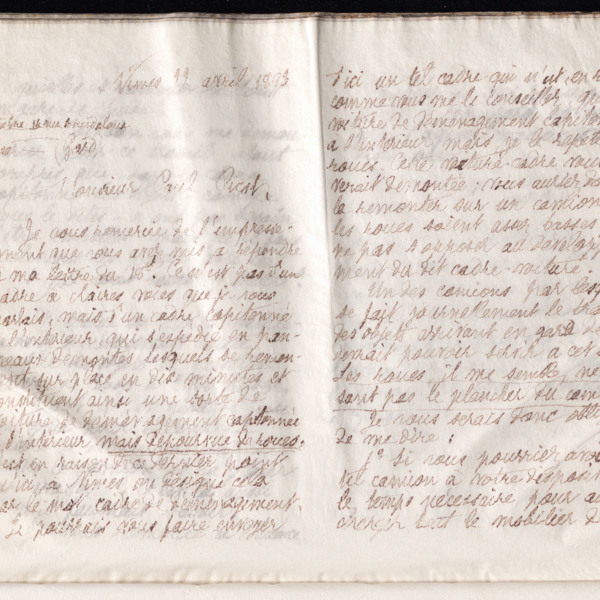 Nîmes 22 avril 1893
(Gard)
Monsieur Paul Picot,
Je vous remercie de l'empresse-
ment que vous avez mis à répondre
à ma lettre du 15. Ce n'est pas d'un
cadre à claires voies que je vous
parlais, mais d'un cadre capitonné
à l'intérieur, qui s'expédie en pan-
neaux démontés lesquels se remon-
tent sur place en dix minutes et
constituent ainsi une sorte de
voiture de déménagement capitonnée
à l'intérieur mais dépourvue de roues.
C'est en raison de ce dernier point
qu'ici à Nîmes on désigne cela
par le mot cadre de déménagement.
Je pourrais vous faire envoyer
d'ici un tel cadre qui n'est, en
comme vous me le conseillez,
voiture de déménagement capiton
à l'intérieur, mais je le répète
roues. Cette voiture-cadre vous
verrait démontée; vous auriez
la remonter sur un camion
les roues soient assez basses
ne pas s'opposer au
ment du dit cadre-voiture.
Un des camions par
se fait journellement le
des objets arrivant en gare de
verrait pouvoir servir à cet
Les roues, il me semble, ne
sant pas le plancher du
Je vous serais donc
de me dire:
1° Si vous pourriez
tel camion à votre disposit
le temps nécessaire pour
tout le mobilier